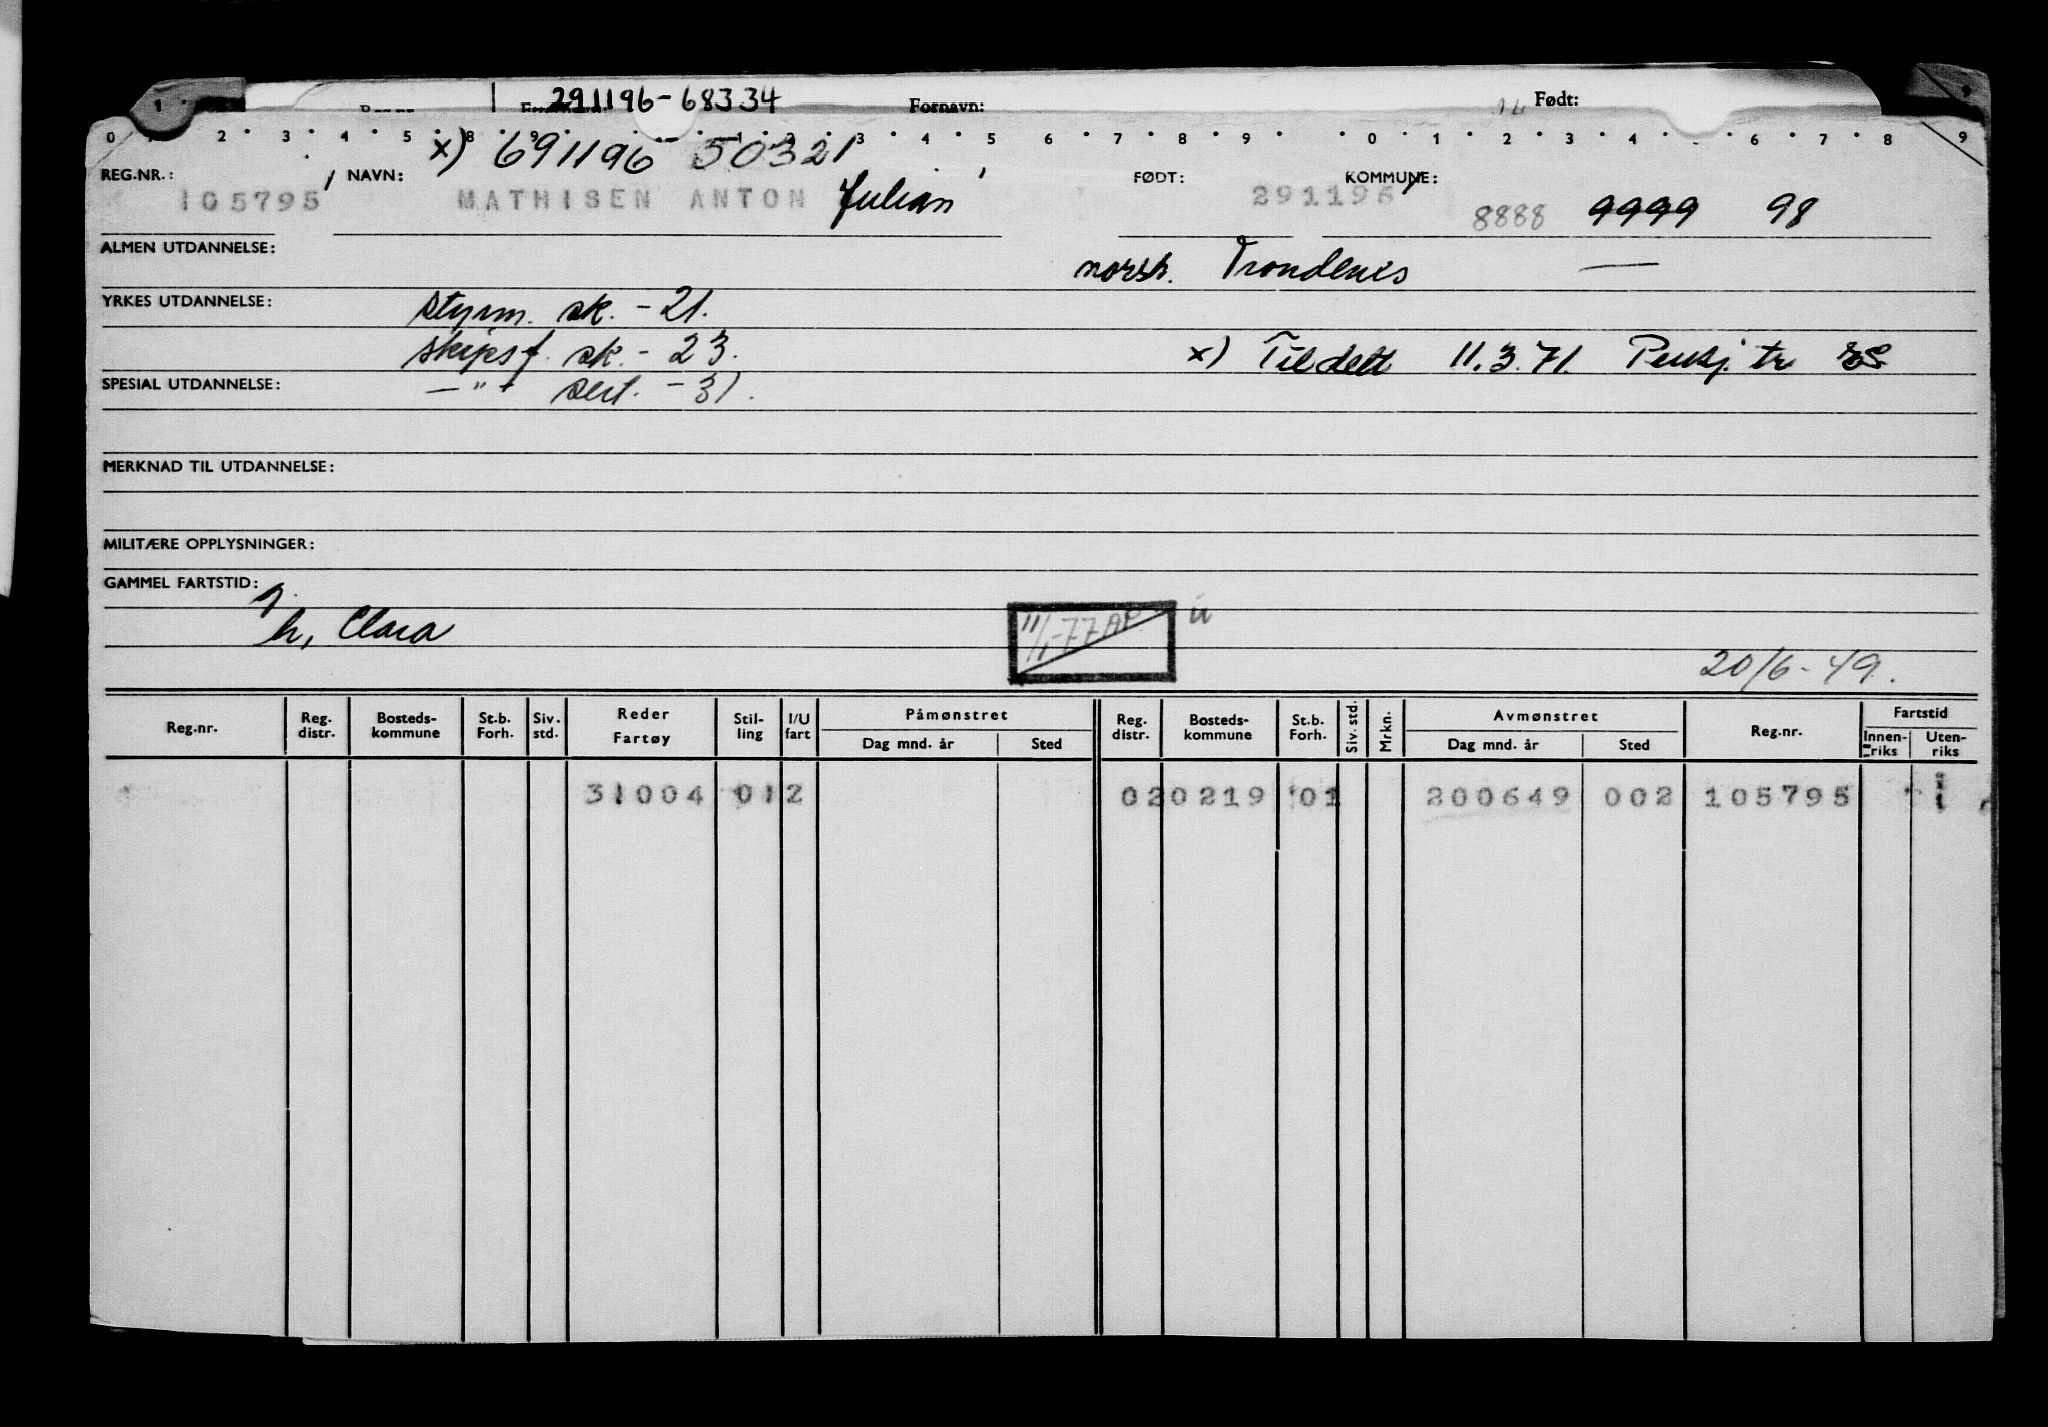 291196-68334 Fornavn: Født:
x) 691196 50321
REG.NR.: 105795 NAVN: MATHISEN ANTON Julian FØDT: 291196 KOMMUNE: 8888 9999 98
ALMEN UTDANNELSE: norsk. Trondenes —
YRKES UTDANNELSE: styrm. sk. - 21.
skipsf. sk. - 23. x) Tildelt 11.3.71.
SPESIAL UTDANNELSE: — " - sert. - 31.
MERKNAD TIL UTDANNELSE:
MILITÆRE OPPLYSNINGER:
GAMMEL FARTSTID:
h, Clara 11/1-77 AP
20/6-49.
Reg.nr. Reg. distr. Bosteds-kommune St.b. Forh. Siv. std. Reder Fartøy Stil-ling I/U fart Påmønstret Dag mnd. år Sted Reg. distr. Bosteds-kommune St.b. Forh. Siv. std. Mrkn. Avmønstret Dag mnd. år Sted Reg.nr. Fartstid Innen-riks Uten-riks
31004 012 020219 01 200649 002 105795